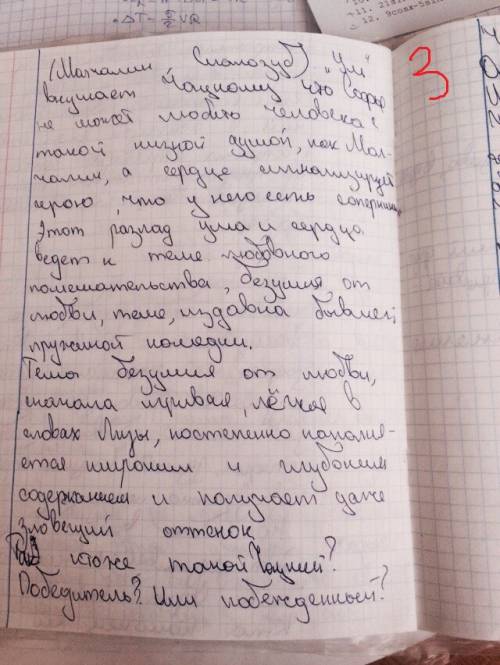 ΔT = 5/2 νR
11. 
12. 9cosx-5sin
3
(Молчалин Скалозуб) „Ум"
внушает Чацкому что Софья
не может любить человека с
такой низкой душой, как Мол-
чалин, а сердце сигнализирует
герою, что у него есть соперник
Этот разлад ума и сердца
ведет к теме любовного
помешательства, безумия от
любви, теме, издавна бывшей
пружиной комедии.
Тема безумия от любви,
сначала игривая, лёгкая в
словах Лизы, постепенно наполня-
ется широким и глубоким
содержанием и получает даже
зловещий оттенок
кто же такой Чацкий?
Победитель? Или побежденный?